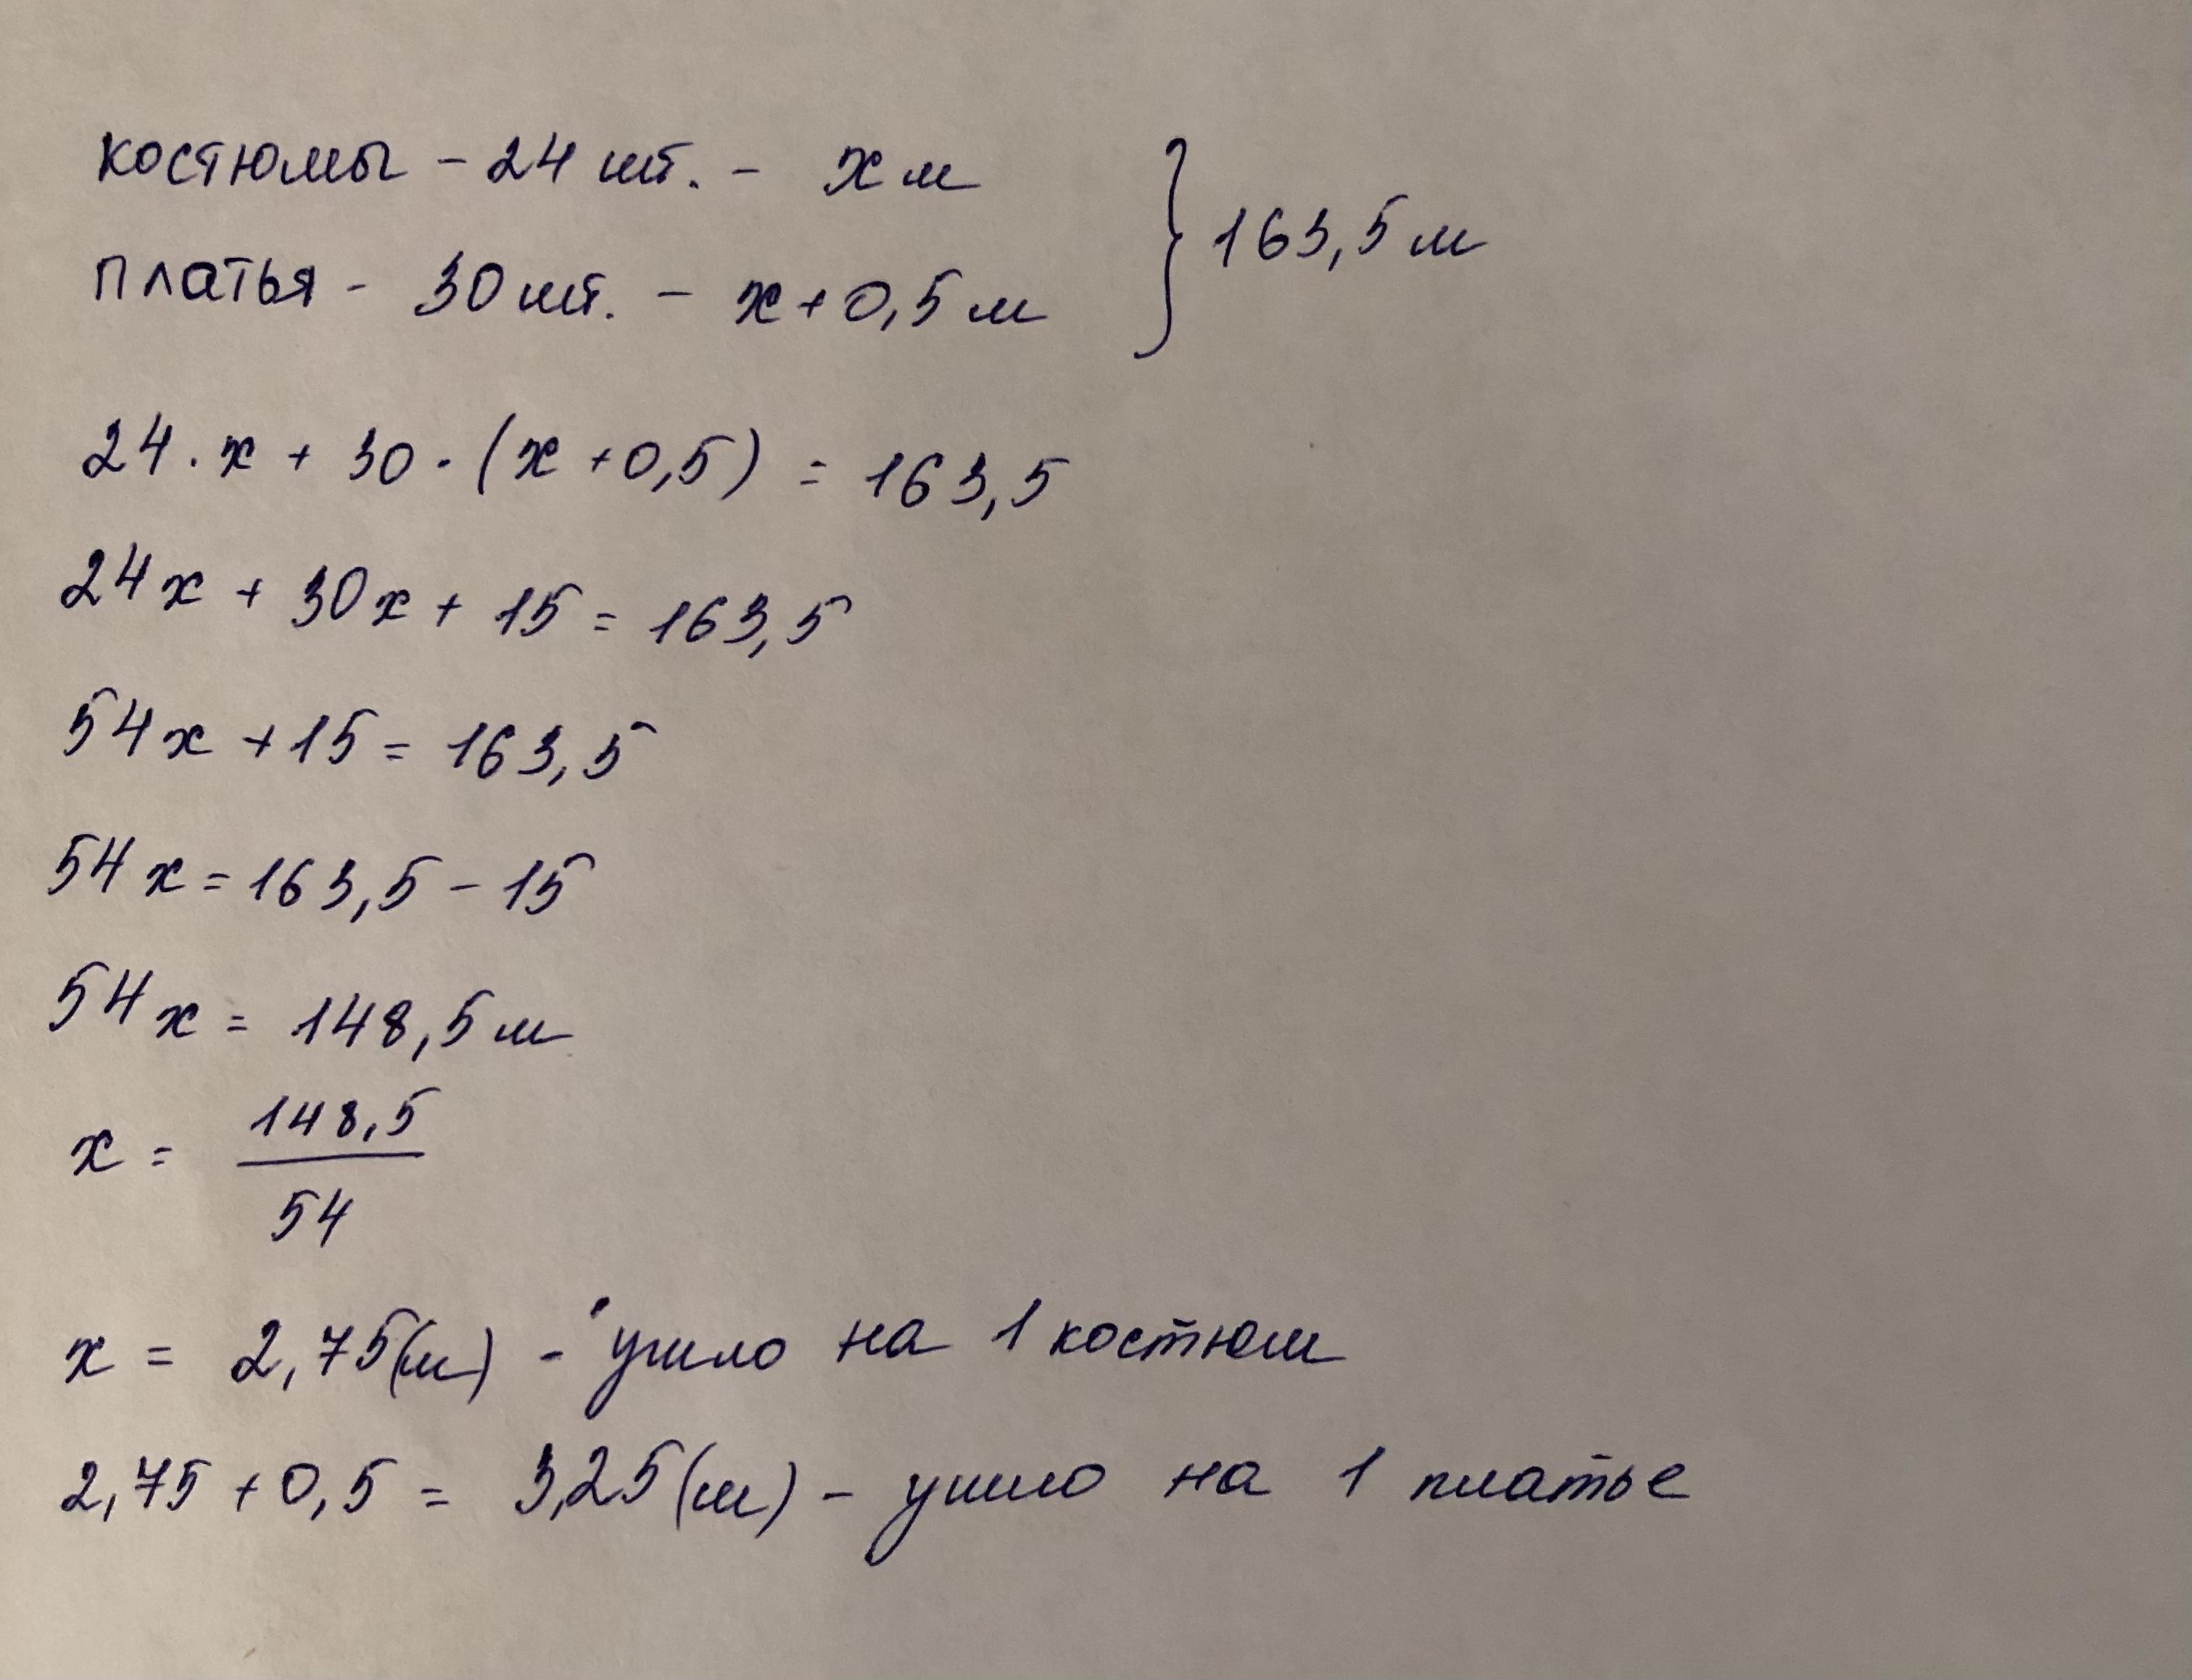 костюмы - 24 шт. - x м
платья - 30 шт. - x + 0,5 м } 163,5 м
24 · x + 30 · (x + 0,5) = 163,5
24x + 30x + 15 = 163,5
54x + 15 = 163,5
54x = 163,5 - 15
54x = 148,5 м
x = 148,5 / 54
x = 2,75 (м) - ушло на 1 костюм
2,75 + 0,5 = 3,25 (м) - ушло на 1 платье